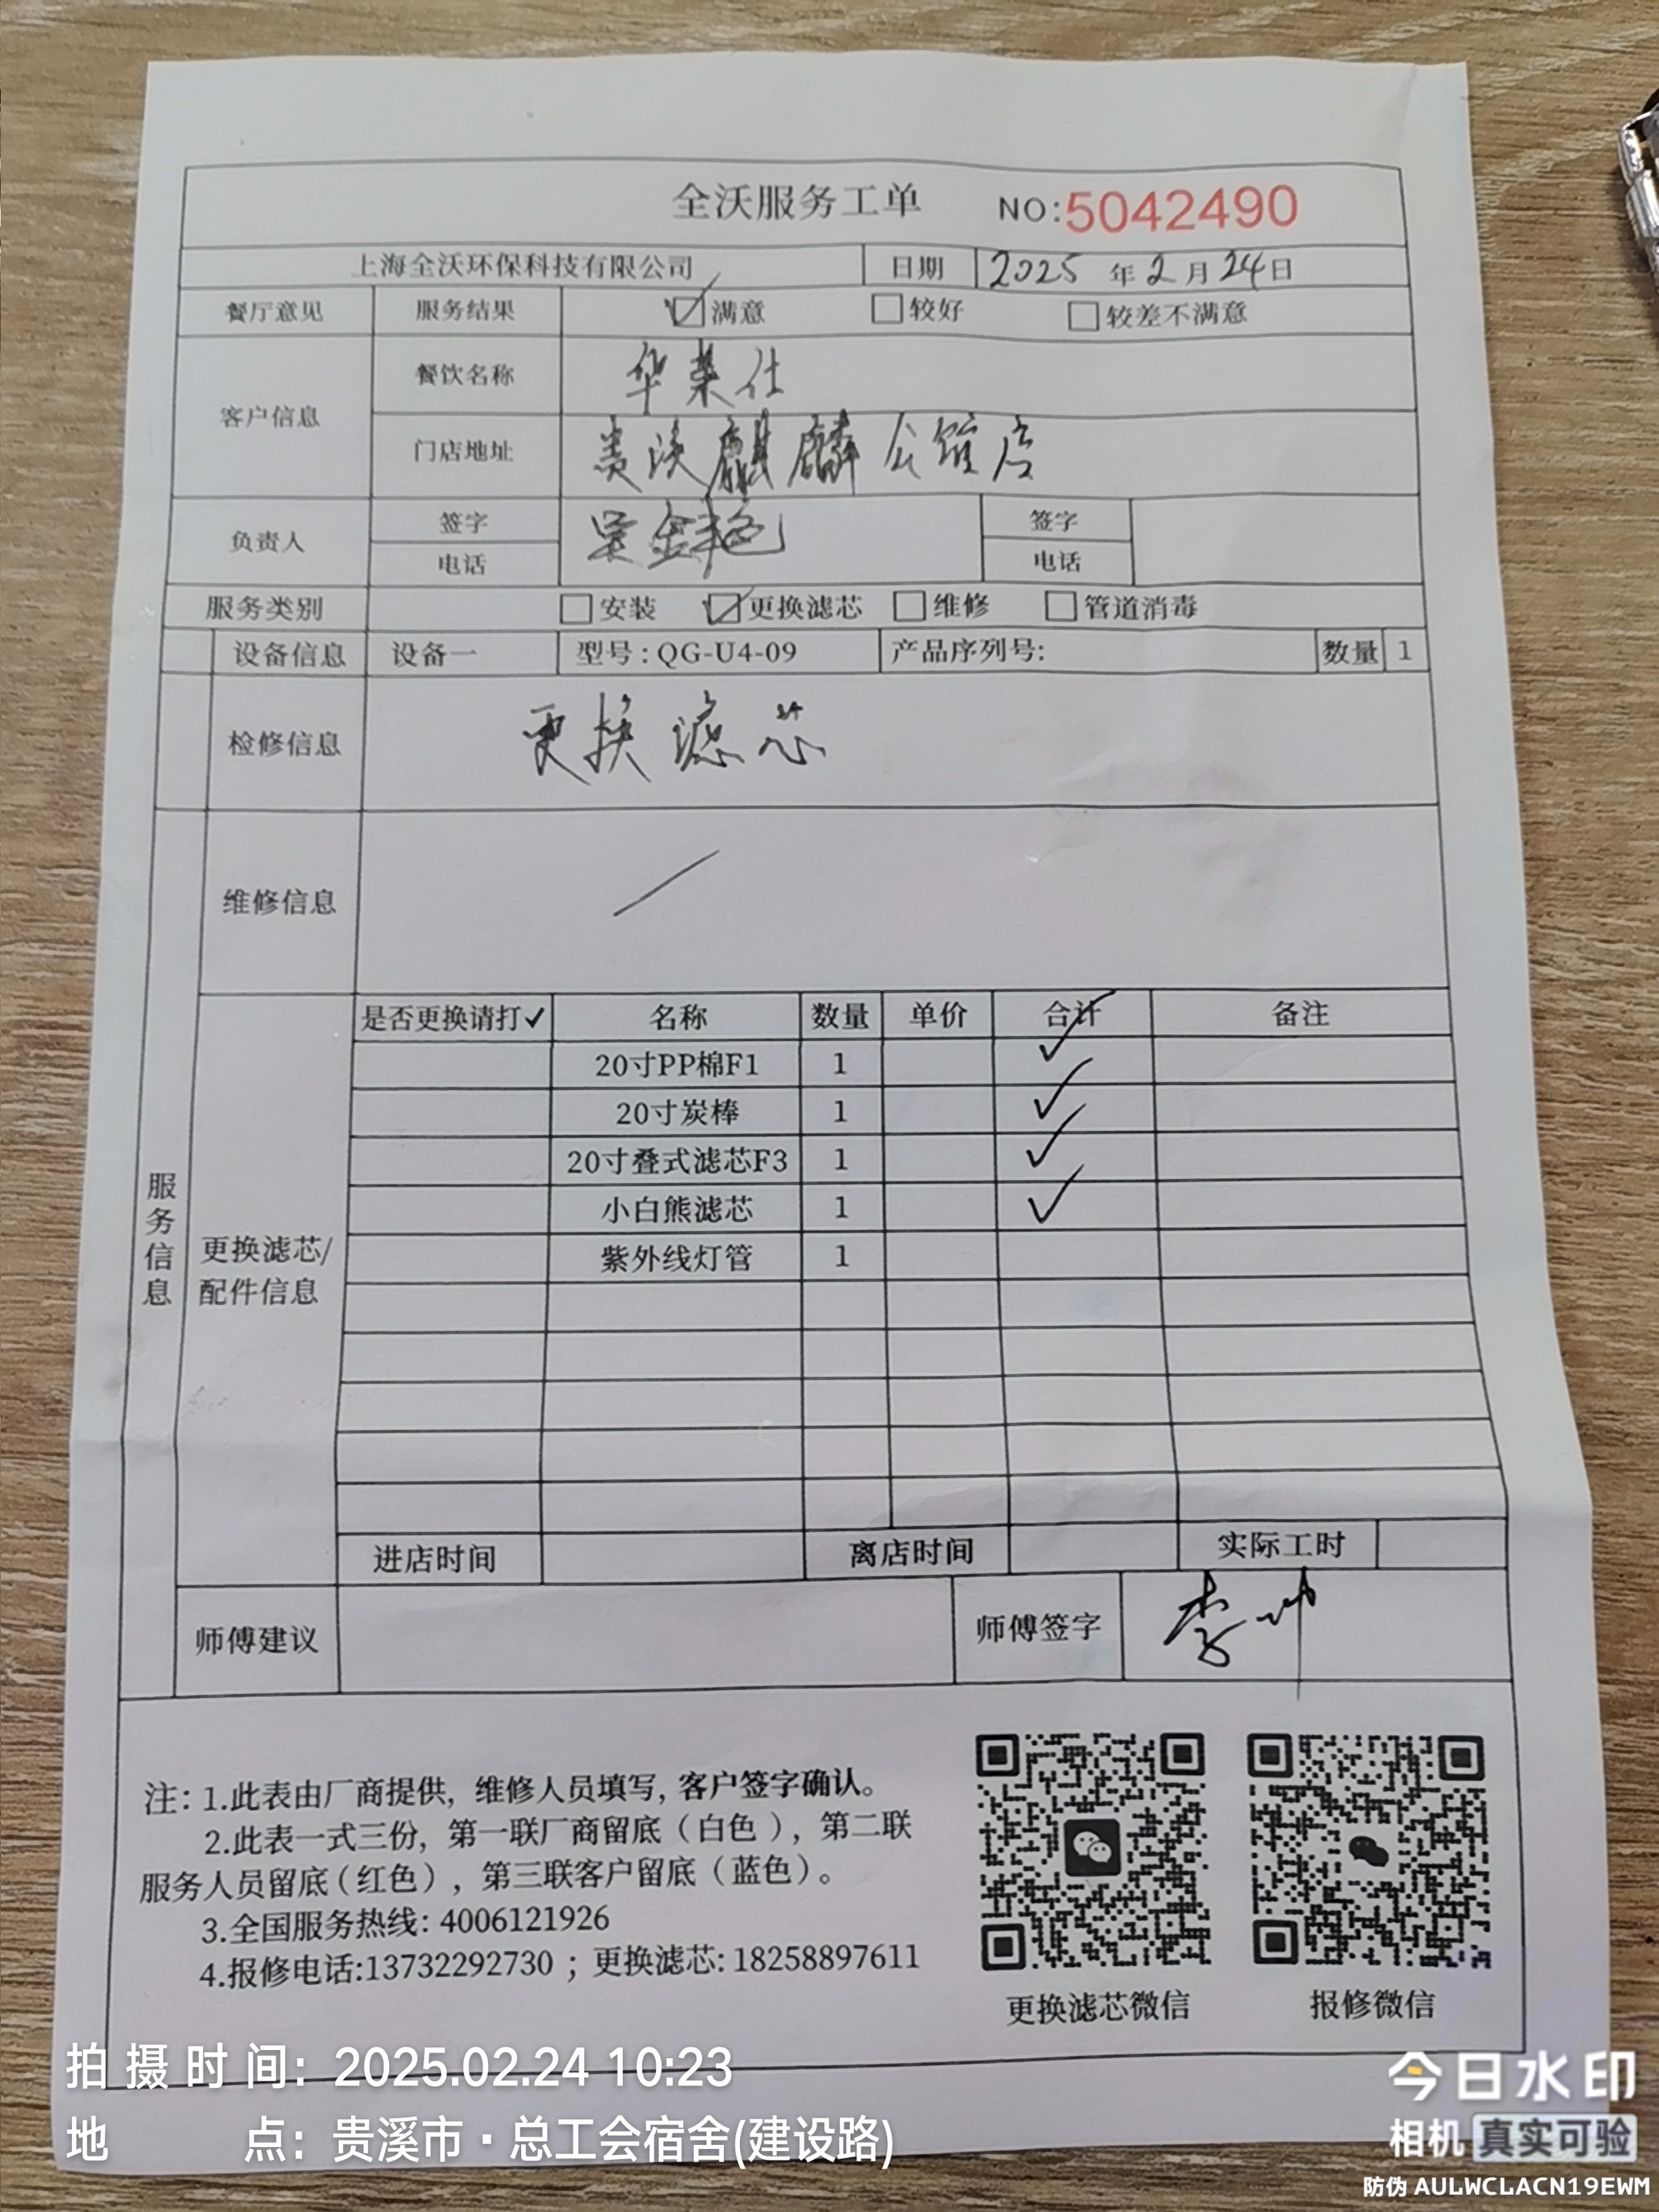 全沃服务工单 NO:5042490
上海全沃环保科技有限公司 日期 2025 年 2 月 24 日
餐厅意见 服务结果 ☑满意 □较好 □较差不满意
客户信息 餐饮名称 华莱仕
门店地址 贵溪麒麟公馆店
负责人 签字 吴金艳 签字
电话 电话
服务类别 □安装 ☑更换滤芯 □维修 □管道消毒
设备信息 设备一 型号:QG-U4-09 产品序列号: 数量 1
检修信息 更换滤芯
维修信息 /
服务信息
更换滤芯/
配件信息
是否更换请打✓ 名称 数量 单价 合计 备注
20寸PP棉F1 1 ✓
20寸炭棒 1 ✓
20寸叠式滤芯F3 1 ✓
小白熊滤芯 1 ✓
紫外线灯管 1
进店时间 离店时间 实际工时
师傅建议 师傅签字 李帅
注: 1.此表由厂商提供, 维修人员填写, 客户签字确认。
2.此表一式三份, 第一联厂商留底(白色), 第二联
服务人员留底(红色), 第三联客户留底(蓝色)。
3.全国服务热线: 4006121926
4.报修电话:13732292730 ; 更换滤芯: 18258897611
更换滤芯微信 报修微信
拍摄时间: 2025.02.24 10:23
地 点: 贵溪市·总工会宿舍(建设路)
今日水印
相机 真实可验
防伪 AULWCLACN19EWM